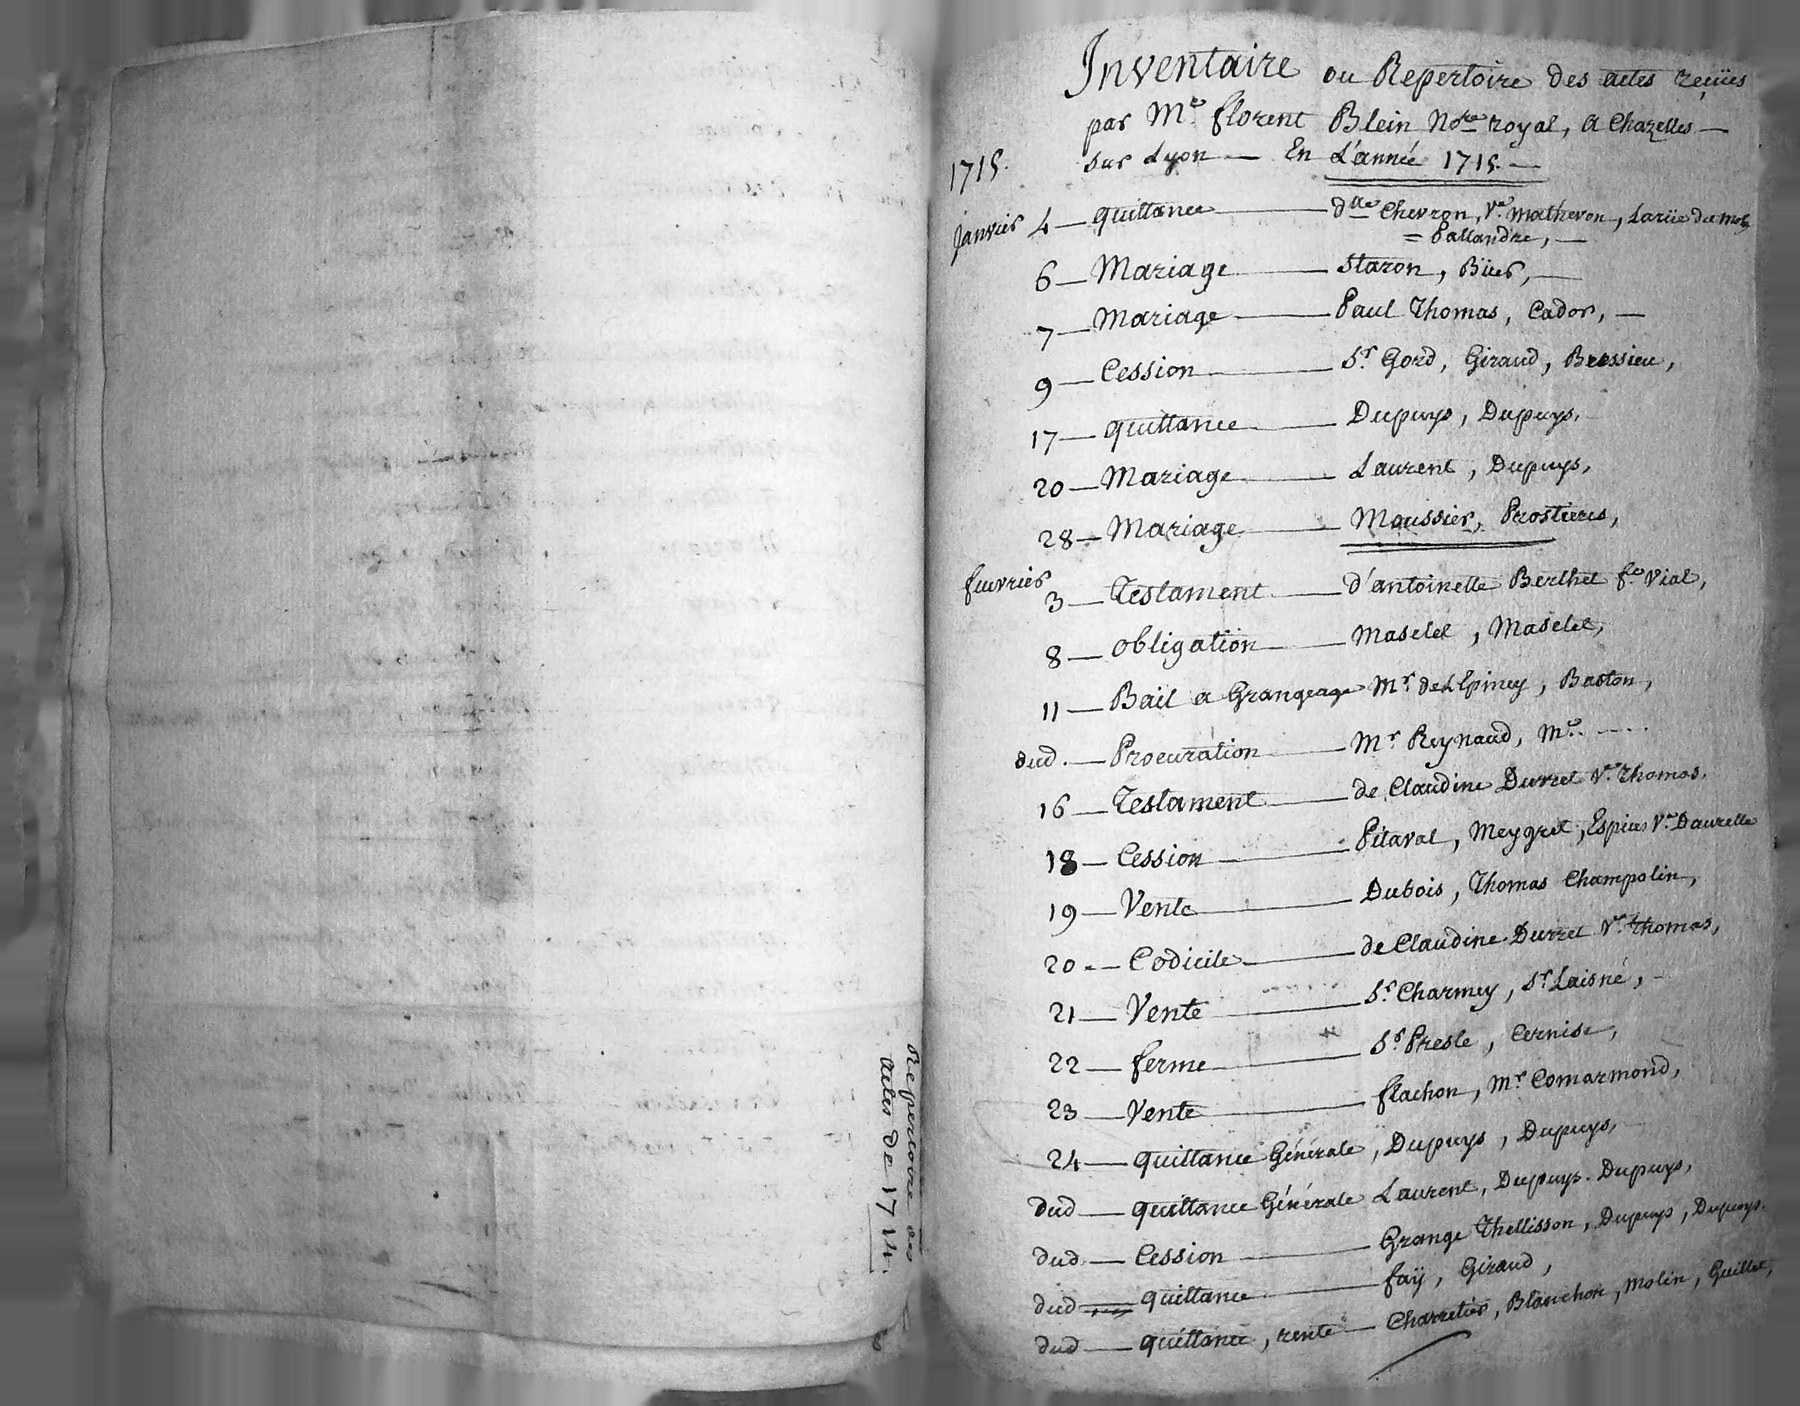 Repertoire des
actes de 1714.
Inventaire ou Repertoire des actes reçües
par Me. florent Blein Nore royal, a Chazelles —
sur Lyon — En L'année 1715. —
1715.
janvier 4 — quittance — dlle Chevron, Ve. Mathevon, Larüe du
= Pallandre, —
6 — Mariage — Staron, Bües, —
7 — Mariage — Paul Thomas, Cador, —
9 — Cession — Sr. Gord, Giraud, Bressieu,
17 — quittance — Dupuys, Dupuys,
20 — Mariage — Laurent, Dupuys,
28 — Mariage — Moussier, Prostieres,
feuvrier 3 — Testament — d'antoinette Berthet fe. Vial,
8 — obligation — Maselet, Maselet,
11 — Bail a Grangeage Mr. de Lepiney, Baston,
dud. — Procuration — Mr Reynaud, Me. ....
16 — Testament — de Claudine Durret Ve. Thomas,
18 — Cession — Pitaval, Meygret, Espies Ve. Daurelle
19 — Vente — Dubois, Thomas Champolin,
20 — Codicile — de Claudine Durret Ve. Thomas,
21 — Vente — Sr. Charmey, Sr Laisné, —
22 — ferme — Sr. Presle, Cernise,
23 — Vente — flachon, Mr Comarmond,
24 — quittance Générale, Dupuys, Dupuys,
dud — quittance Générale Laurent, Dupuys. Dupuys,
dud. — Cession — Grange Thellisson, Dupuys, Dupuys.
dud — quittance — faÿ, Giraud,
dud — quittance, rente — Charretier, Blanchon, Molin, Guillet,